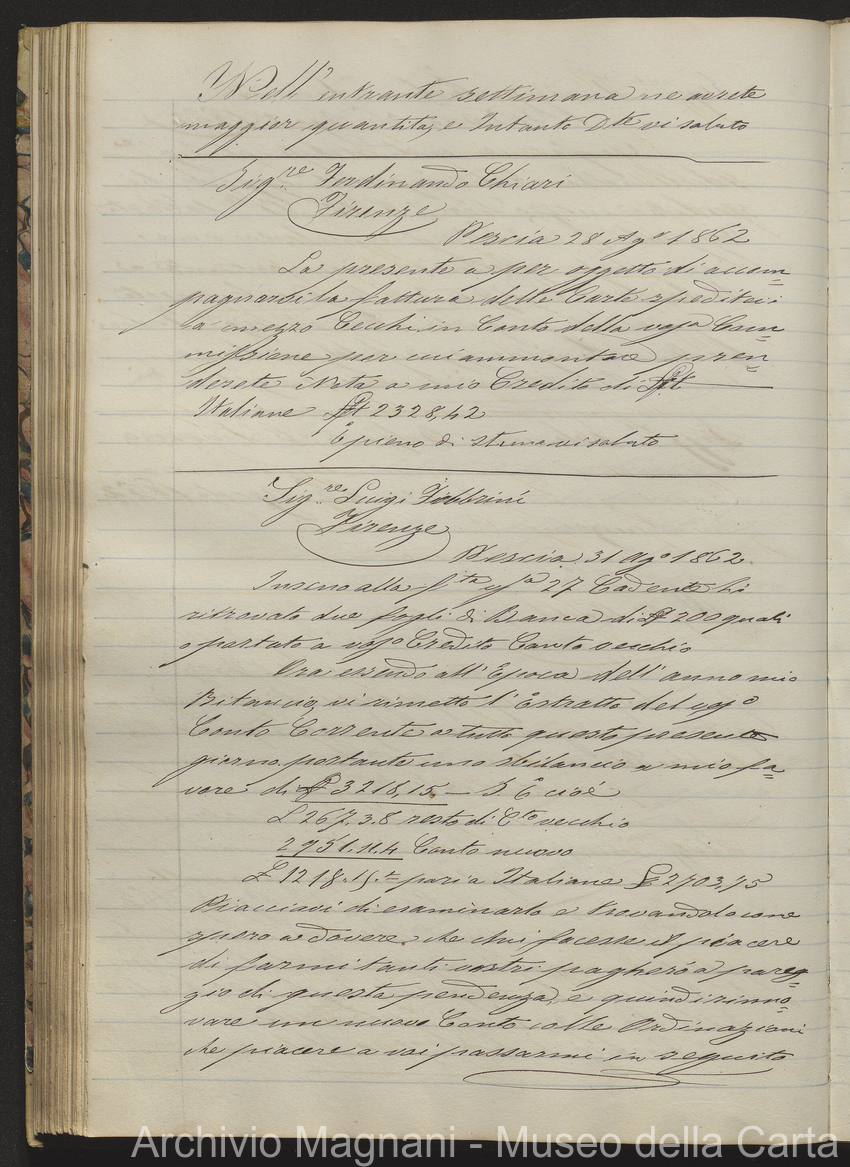 Nell' entrante settimana ne avrete
maggior quantità, e Intanto Dte vi saluto
Sigre Ferdinando Chiari
Firenze
Pescia 28 Ago 1862
La presente a per oggetto di accom=
pagnarvi la fattura delle Carte speditevi
a mezzo Cecchi in Conto della vosa Com=
missione per cui ammontare pren=
derete Nota a mio Credito di
Italiane 2328,42
E pieno di stima vi saluto
Sigre Luigi Fabbrini
Firenze
Pescia 31 Ago 1862
In seno alla 27 Cadente hò
ritrovato due fogli di Banca di 200 quali
o portato a voso Credito Conto vecchio
Ora essendo all' Epoca dell' anno mio
Bilancio, vi rimetto l' Estratto del voso
Conto Corrente a tutto questo presente
giorno portante uno sbilancio a mio fa=
vore di 3218,15 — cioè
£ 267.3.8 resto di Cto vecchio
2951.11.4 Conto nuovo
£ 3218.15.= pari a Italiane £ 2703,75
Piacciavi di esaminarlo e trovandolo come
spero a dovere, che mi faceste il piacere
di farmi tanti vostri pagherò a pareg=
gio di questa pendenza, e quindi rinno=
vare un nuovo Conto colle Ordinazioni
che piacere a voi passarmi in seguito
Archivio Magnani - Museo della Carta